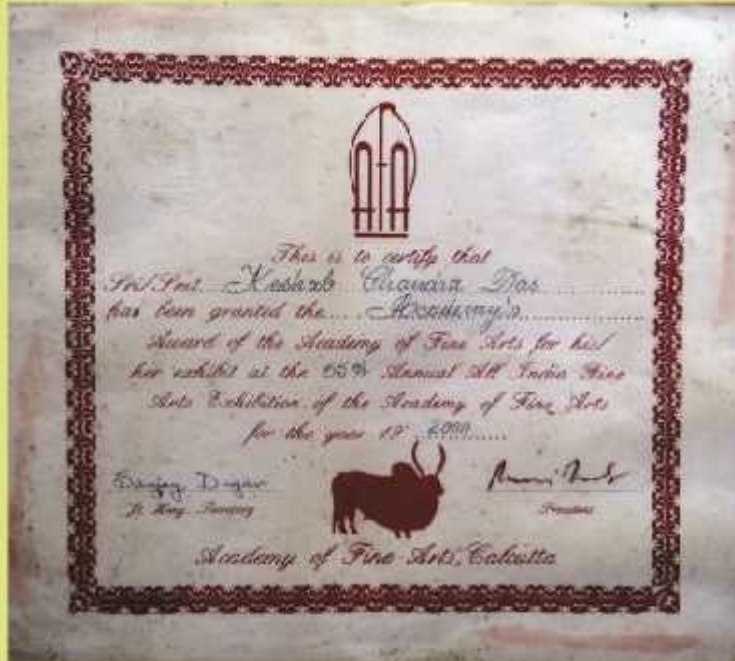 This is to certify that
Sri/Smt. Keshab Chandra Das
has been granted the.... Academy's
Award of the Academy of Fine Arts for his/
her exhibit at the 65th Annual All India Fine
Arts Exhibition of the Academy of Fine Arts
for the year 19 2000
Sanjay
Jt. Hony. Secretary
President
Academy of Fine Arts, Calcutta